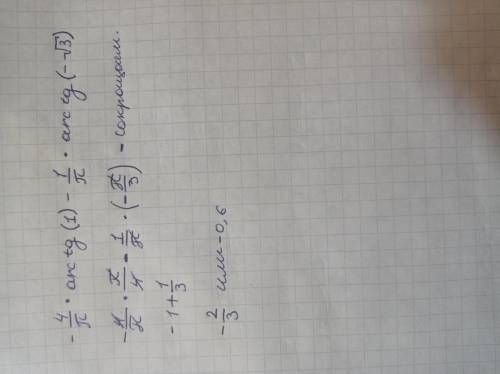 -4/π · arctg(1) - 1/π · arctg(-√3)
-4/π · π/4 - 1/π · (-π/3) - сокращаем.
-1+1/3
-2/3 или -0,6